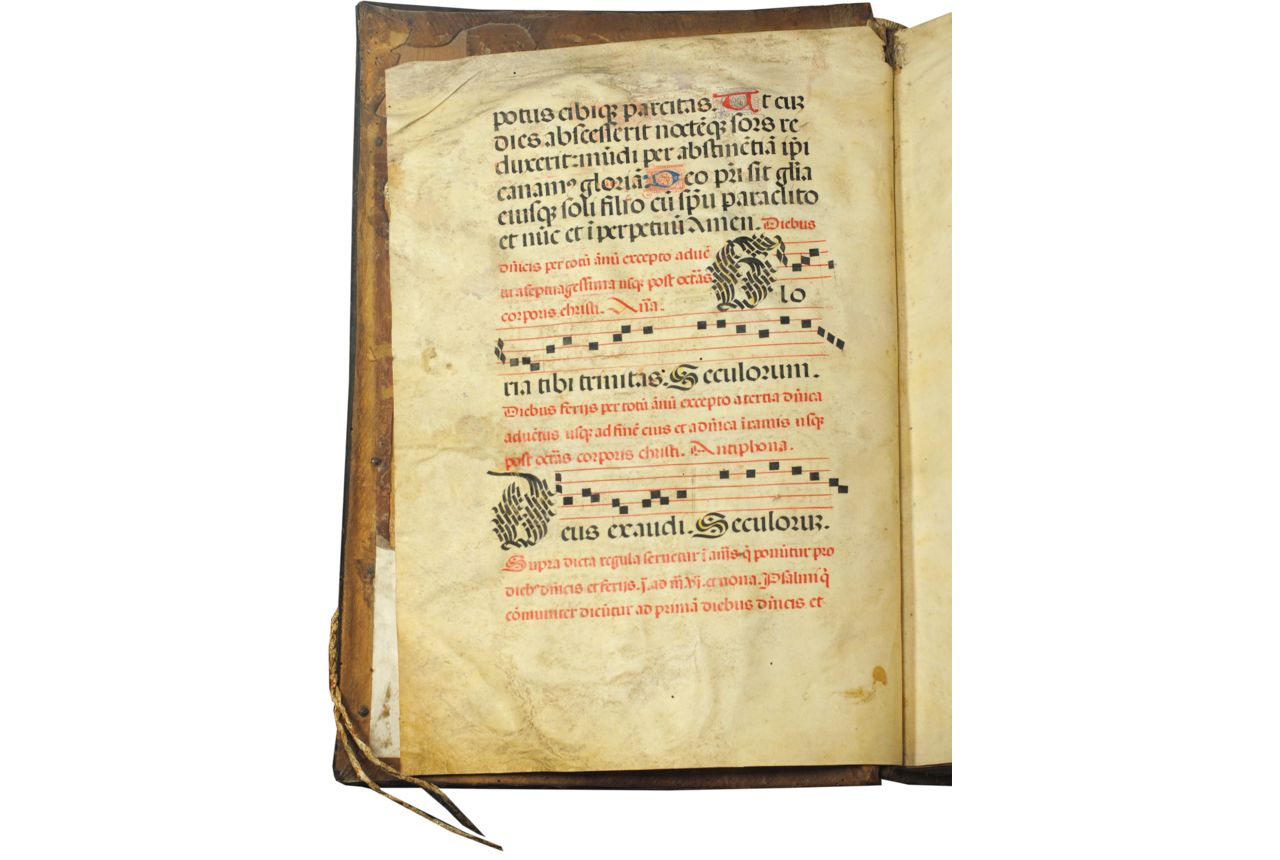 potus cibiqꝫ parcitas. Ut cuꝫ
dies abscesserit noctẽqꝫ sors re
duxerit: mũdi per abstinẽtiã ip̃i
canamꝰ gloriã: Deo pr̃i sit gl̃ia
eiusqꝫ soli filio cũ sp̃u paraclito
et nũc et ĩ perpetuũ Amen. Diebus
dñicis per totũ ãnũ excepto aduẽ
tu a septuagessima usqꝫ post octãs
corporis christi. Añа.
Glo
ria tibi trinitas. Seculorum.
Diebus ferijs per totũ ãnũ excepto a tertia dñica
aduẽtus usqꝫ ad finẽ eius et a dñica ĩ ramis usqꝫ
post octãs corporis christi. Antiphona.
Deus exaudi. Seculoruꝫ.
Supra dicta regula seruetur ĩ añis q̃ ponũtur pro
diebꝰ dñicis et ferijs. j. ad iij. vj. et nona. Psalmi q̃
cõmuniter dicũtur ad primã diebus dñicis et